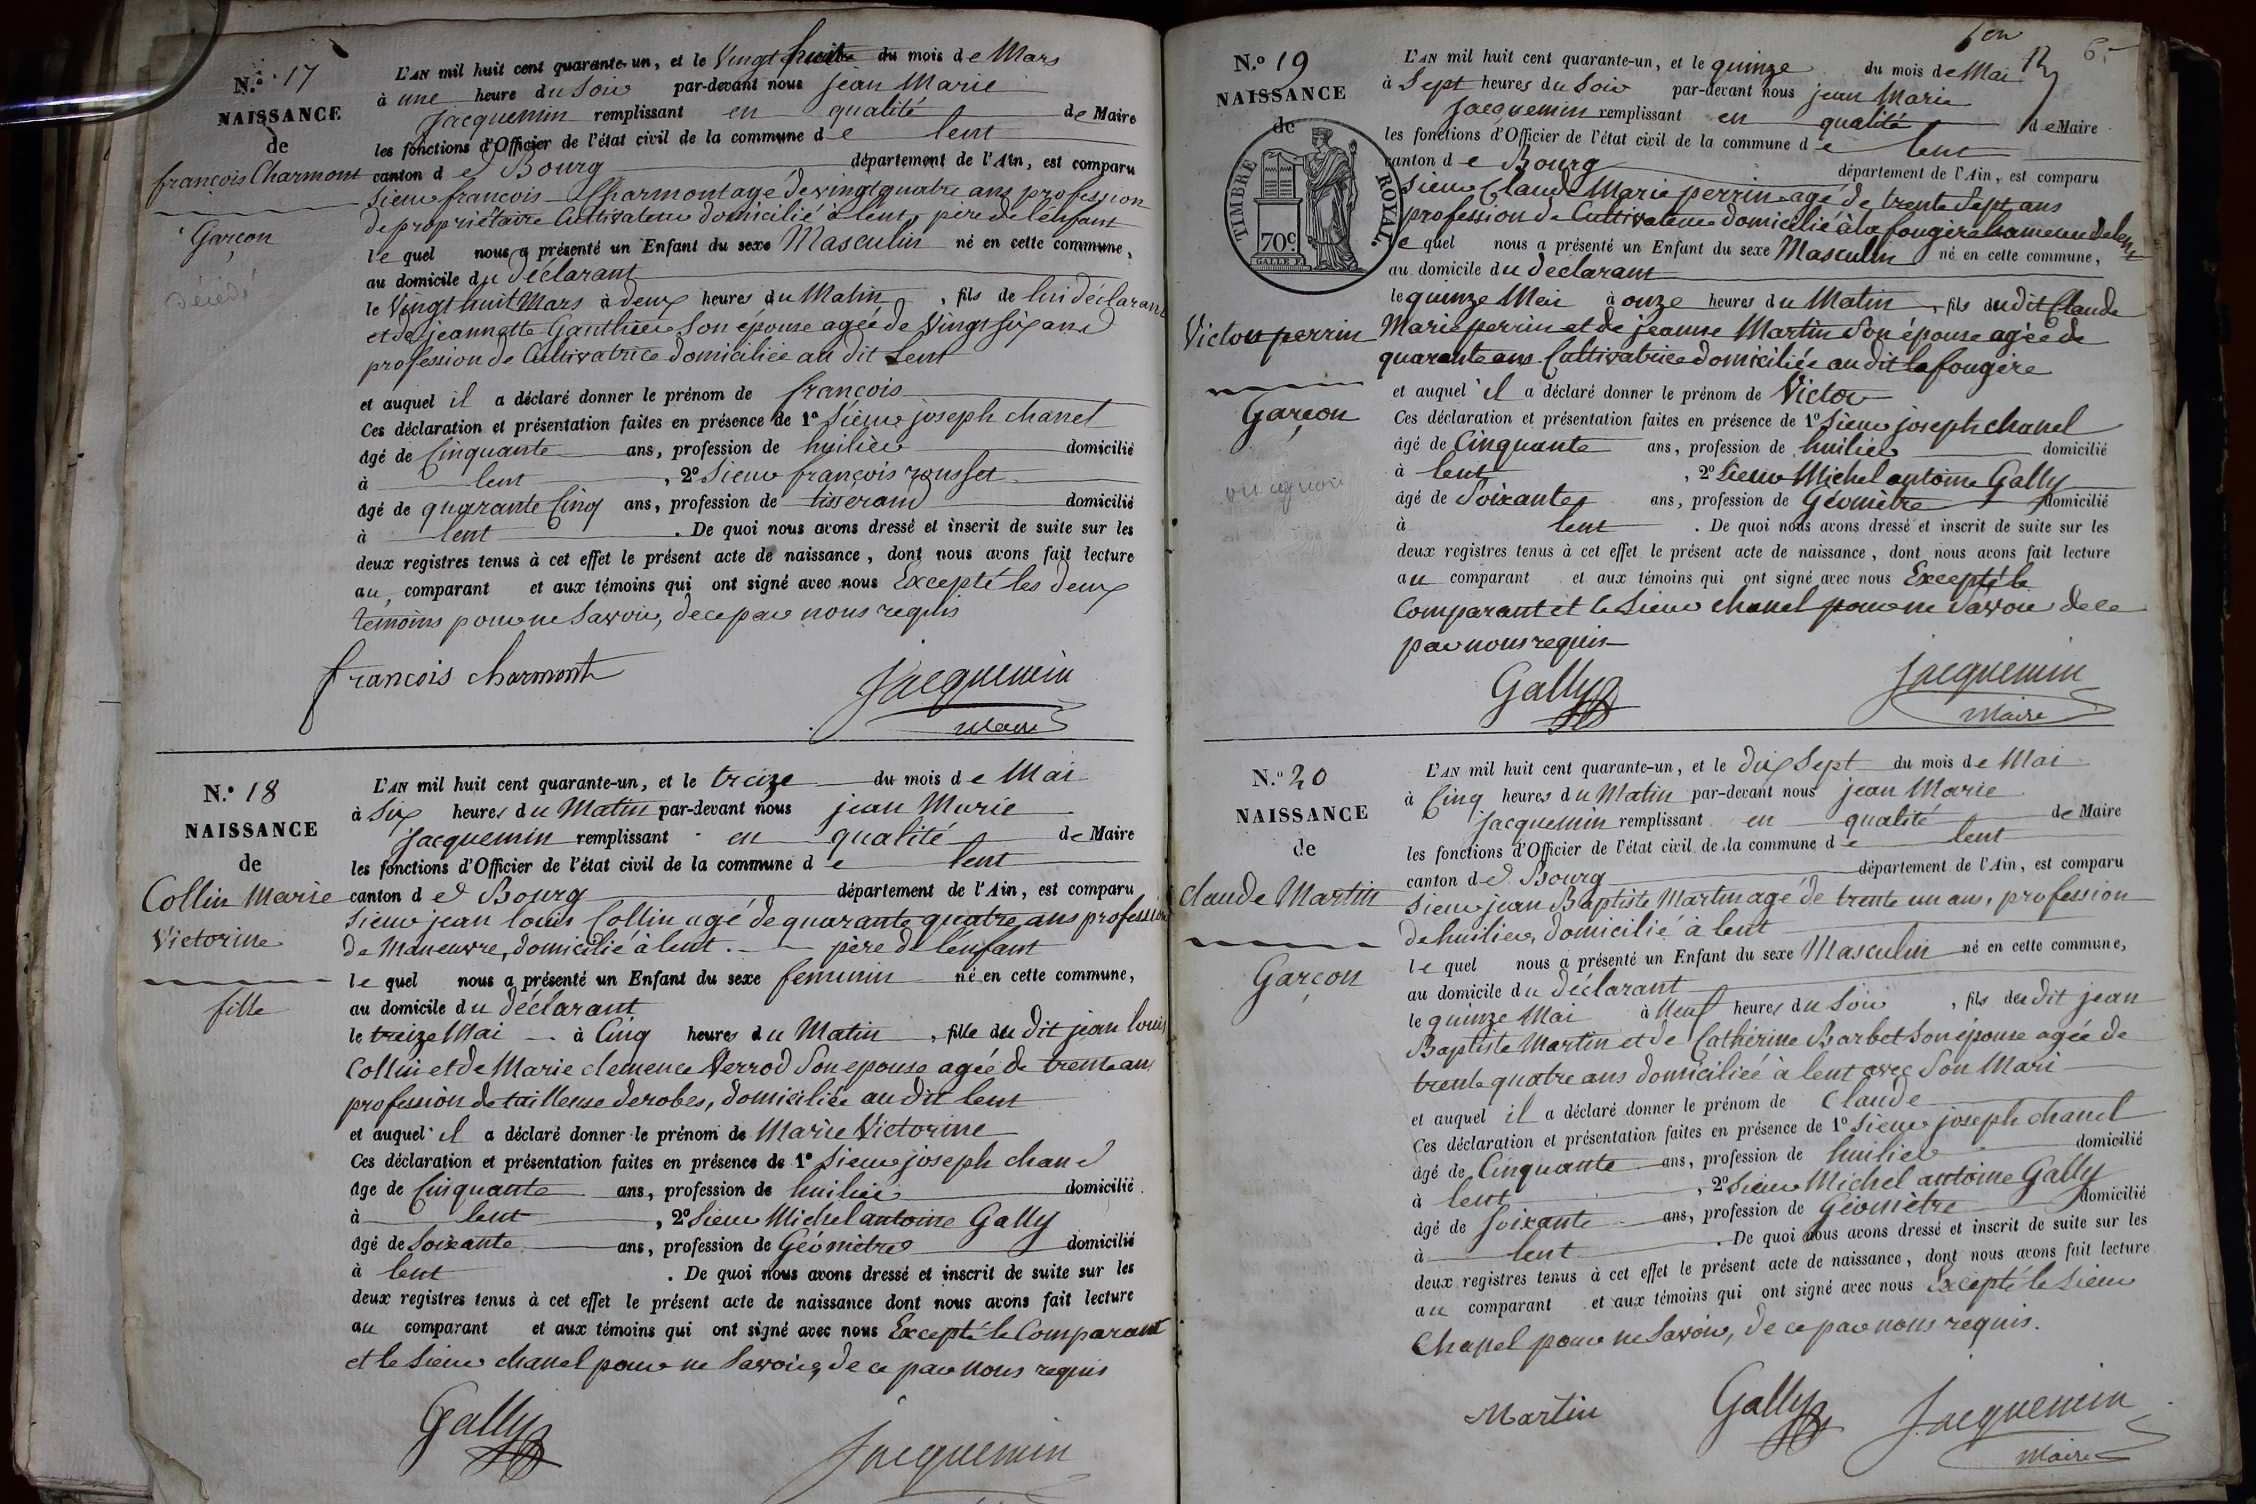 N.º 17
NAISSANCE
de
françois Charmont
Garçon
décédé
L'AN mil huit cent quarante-un, et le Vingt huit du mois de Mars
à une heure du Soir par-devant nous jean Marie
Jacquemin remplissant en qualité de Maire
les fonctions d'Officier de l'état civil de la commune de lent
canton de Bourg département de l'Ain, est comparu
Sieur françois Charmont agé de vingt quatre ans profession
de propriétaire Cultivateur domicilié à lent, père de l'enfant
lequel nous a présenté un Enfant du sexe Masculin né en cette commune,
au domicile du déclarant
le Vingt huit Mars à deux heures du Matin, fils de lui déclarant
et de jeannette Gauthier Son épouse agée de Vingt six ans
profession de Cultivatrice domiciliée au dit Lent
et auquel il a déclaré donner le prénom de françois
Ces déclaration et présentation faites en présence de 1º Sieur joseph chanel
âgé de Cinquante ans, profession de huilier domicilié
à lent, 2º Sieur françois rousset
âgé de quarante Cinq ans, profession de tisserand domicilié
à lent. De quoi nous avons dressé et inscrit de suite sur les
deux registres tenus à cet effet le présent acte de naissance, dont nous avons fait lecture
au comparant et aux témoins qui ont signé avec nous Excepté les deux
témoins pour ne Savoir, de ce par nous requis
francois charmont Jacquemin
Maire
N.º 18
NAISSANCE
de
Collin Marie
Victorine
fille
L'AN mil huit cent quarante-un, et le treize du mois de Mai
à Six heures du Matin par-devant nous jean Marie
Jacquemin remplissant en qualité de Maire
les fonctions d'Officier de l'état civil de la commune de lent
canton de Bourg département de l'Ain, est comparu
Sieur jean louis Collin agé de quarante quatre ans profession
de Maneuvre, domicilié à lent. père de l'enfant
lequel nous a présenté un Enfant du sexe feminin né en cette commune,
au domicile du déclarant
le treize Mai à Cinq heures du Matin, fille du dit jean louis
Collin et de Marie clemence Verrod Son epouse agée de trente ans
profession de tailleuse de robes, domiciliée au dit lent
et auquel il a déclaré donner le prénom de Marie Victorine
Ces déclaration et présentation faites en présence de 1º Sieur joseph chanel
âge de Cinquante ans, profession de huilier domicilié
à lent, 2º Sieur Michel antoine Gally
âgé de Soixante ans, profession de Géomètre domicilié
à lent. De quoi nous avons dressé et inscrit de suite sur les
deux registres tenus à cet effet le présent acte de naissance dont nous avons fait lecture
au comparant et aux témoins qui ont signé avec nous Excepté le Comparant
et le Sieur chanel pour ne Savoir, de ce par nous requis
Gally Jacquemin
N.º 19
NAISSANCE
de
TIMBRE ROYAL.
70c.
Victor perrin
Garçon
L'AN mil huit cent quarante-un, et le quinze du mois de Mai
à Sept heures du Soir par-devant nous jean Marie
Jacquemin remplissant en qualité de Maire
les fonctions d'Officier de l'état civil de la commune de lent
canton de Bourg département de l'Ain, est comparu
Sieur Claude Marie perrin agé de trente Sept ans
profession de Cultivateur domicilié à la fougère hameau de lent
lequel nous a présenté un Enfant du sexe Masculin né en cette commune,
au domicile du declarant
le quinze Mai à onze heures du Matin, fils du dit Claude
Marie perrin et de jeanne Martin Son épouse agée de
quarante ans Cultivatrice domiciliée au dit la fougère
et auquel il a déclaré donner le prénom de Victor
Ces déclaration et présentation faites en présence de 1º Sieur joseph chanel
âgé de Cinquante ans, profession de huilier domicilié
à lent, 2º Sieur Michel antoine Gally
âgé de Soixante ans, profession de Géomètre domicilié
à lent. De quoi nous avons dressé et inscrit de suite sur les
deux registres tenus à cet effet le présent acte de naissance, dont nous avons fait lecture
au comparant et aux témoins qui ont signé avec nous Excepté le
Comparant et le Sieur chanel pour ne Savoir de ce
par nous requis
Gally Jacquemin
Maire
N.º 20
NAISSANCE
de
Claude Martin
Garçon
L'AN mil huit cent quarante-un, et le dix Sept du mois de Mai
à Cinq heures du Matin par-devant nous jean Marie
Jacquemin remplissant en qualité de Maire
les fonctions d'Officier de l'état civil de la commune de lent
canton de Bourg département de l'Ain, est comparu
Sieur jean Baptiste Martin agé de trente un ans, profession
de huilier, domicilié à lent
lequel nous a présenté un Enfant du sexe Masculin né en cette commune,
au domicile du déclarant
le quinze Mai à Neuf heures du Soir, fils du dit jean
Baptiste Martin et de Cathérine Barbet Son épouse agée de
trente quatre ans domiciliée à lent avec Son Mari
et auquel il a déclaré donner le prénom de Claude
Ces déclaration et présentation faites en présence de 1º Sieur joseph chanel
âgé de Cinquante ans, profession de huilier domicilié
à lent, 2º Sieur Michel antoine Gally
âgé de Soixante ans, profession de Géomètre domicilié
à lent. De quoi nous avons dressé et inscrit de suite sur les
deux registres tenus à cet effet le présent acte de naissance, dont nous avons fait lecture
au comparant et aux témoins qui ont signé avec nous Excepté le Sieur
Chanel pour ne Savoir, de ce par nous requis.
Martin Gally Jacquemin
Maire